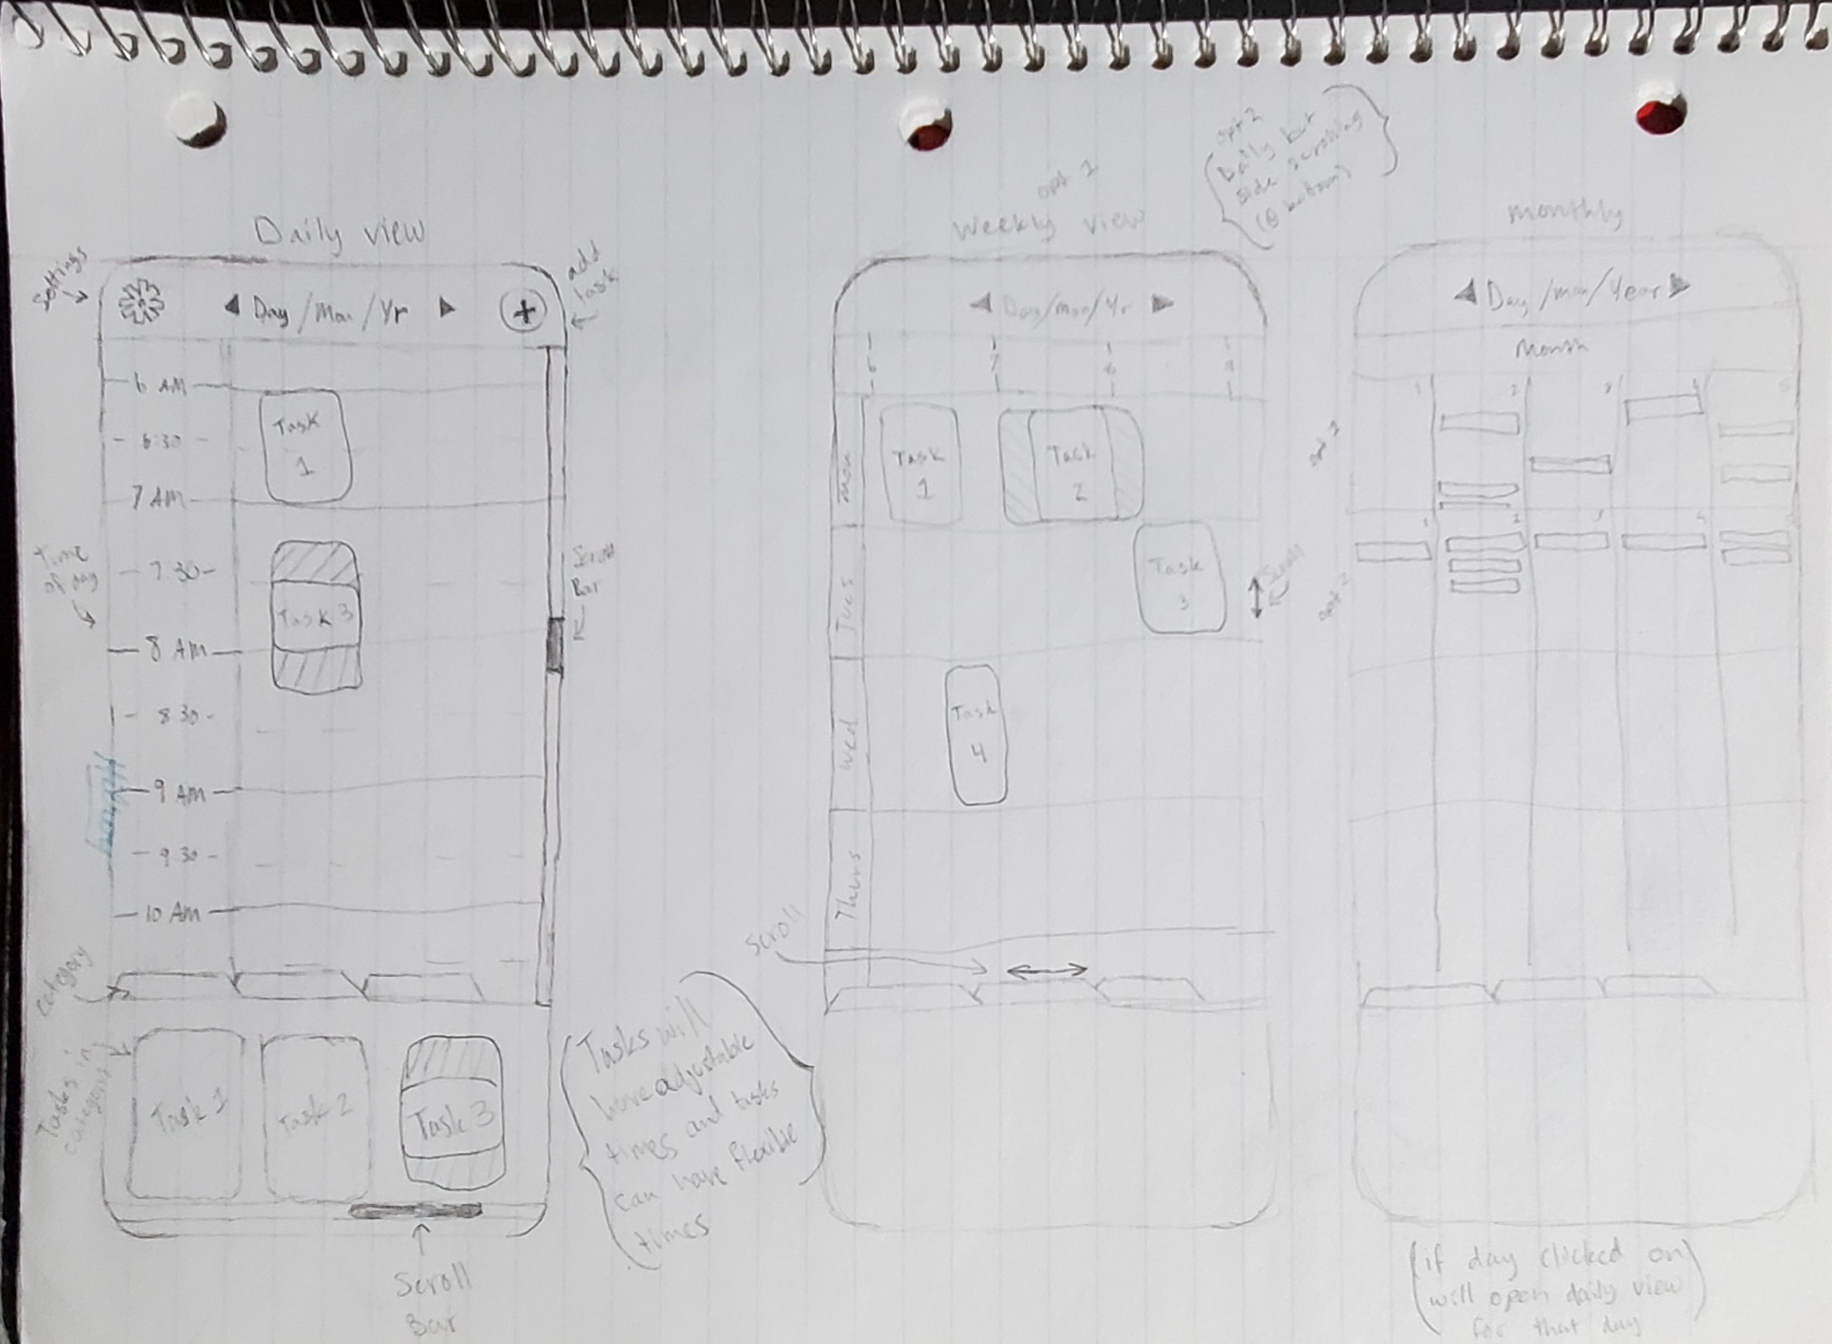 Daily view
Settings
add
task
Day/Mon/Yr
+
6 AM
6:30
7 AM
7:30
8 AM
8:30
9 AM
9:30
10 AM
Task
1
Task 3
Time
of day
Scroll
Bar
category
Tasks in
category
Task 1
Task 2
Task 3
Scroll
Bar
Tasks will
have adjustable
times and tasks
can have flexible
times
opt 1
Weekly view
opt 2
Daily but
side scrolling
(@ bottom)
Day/mon/Yr
6
7
8
9
Mon
Tues
Wed
Thurs
Task
1
Task
2
Task
3
Task
4
Scroll
Scroll
monthly
Day/mon/Year
Month
1
2
3
4
5
opt 1
1
2
3
opt 2
(if day clicked on
will open daily view
for that day)